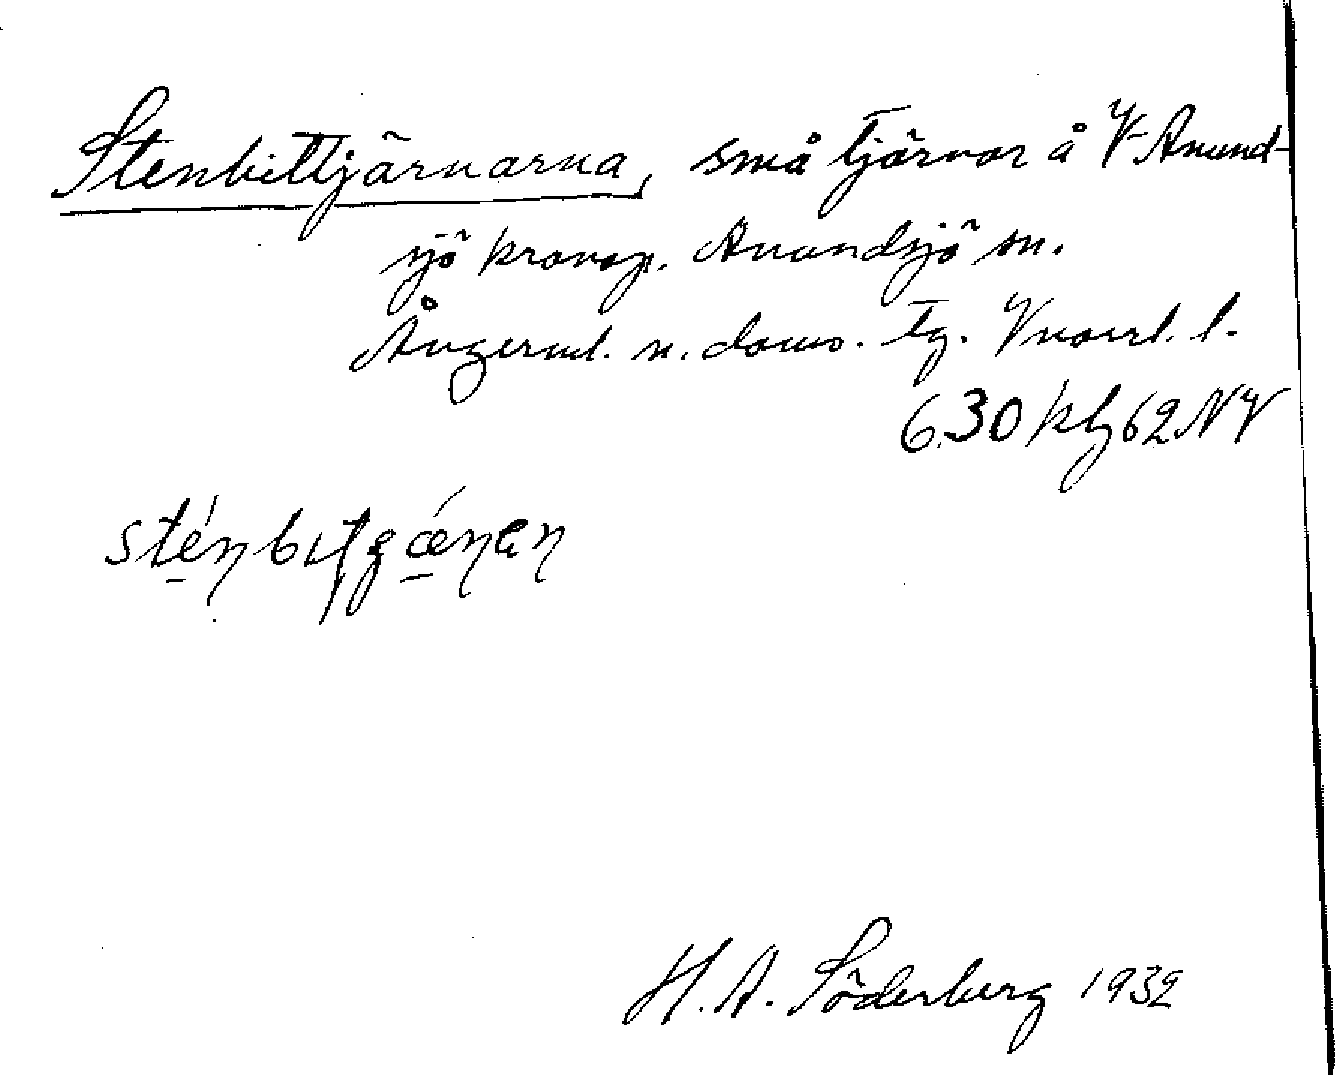 Stenbittjärnarna, små tjärnar å V Anund-
sjö kronop. Anundsjö sn.
Ångerml. n. doms. tg. Vnorrl. l.
630 kbl 62 NV
sténbıtgǽnan
H. A. Söderberg 1932